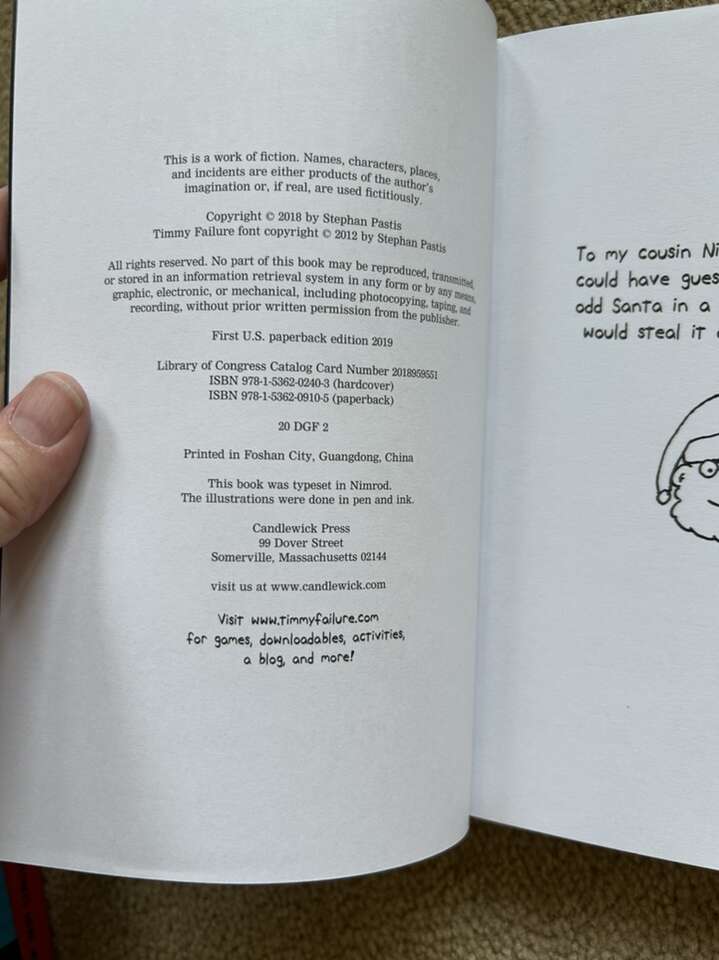 This is a work of fiction. Names, characters, places,
and incidents are either products of the author's
imagination or, if real, are used fictitiously.
Copyright © 2018 by Stephan Pastis
Timmy Failure font copyright © 2012 by Stephan Pastis
All rights reserved. No part of this book may be reproduced, transmitted,
or stored in an information retrieval system in any form or by any means,
graphic, electronic, or mechanical, including photocopying, taping, and
recording, without prior written permission from the publisher.
First U.S. paperback edition 2019
Library of Congress Catalog Card Number 2018959551
ISBN 978-1-5362-0240-3 (hardcover)
ISBN 978-1-5362-0910-5 (paperback)
20 DGF 2
Printed in Foshan City, Guangdong, China
This book was typeset in Nimrod.
The illustrations were done in pen and ink.
Candlewick Press
99 Dover Street
Somerville, Massachusetts 02144
visit us at www.candlewick.com
Visit www.timmyfailure.com
for games, downloadables, activities,
a blog, and more!
To my cousin Ni
could have gues
odd Santa in a
would steal it